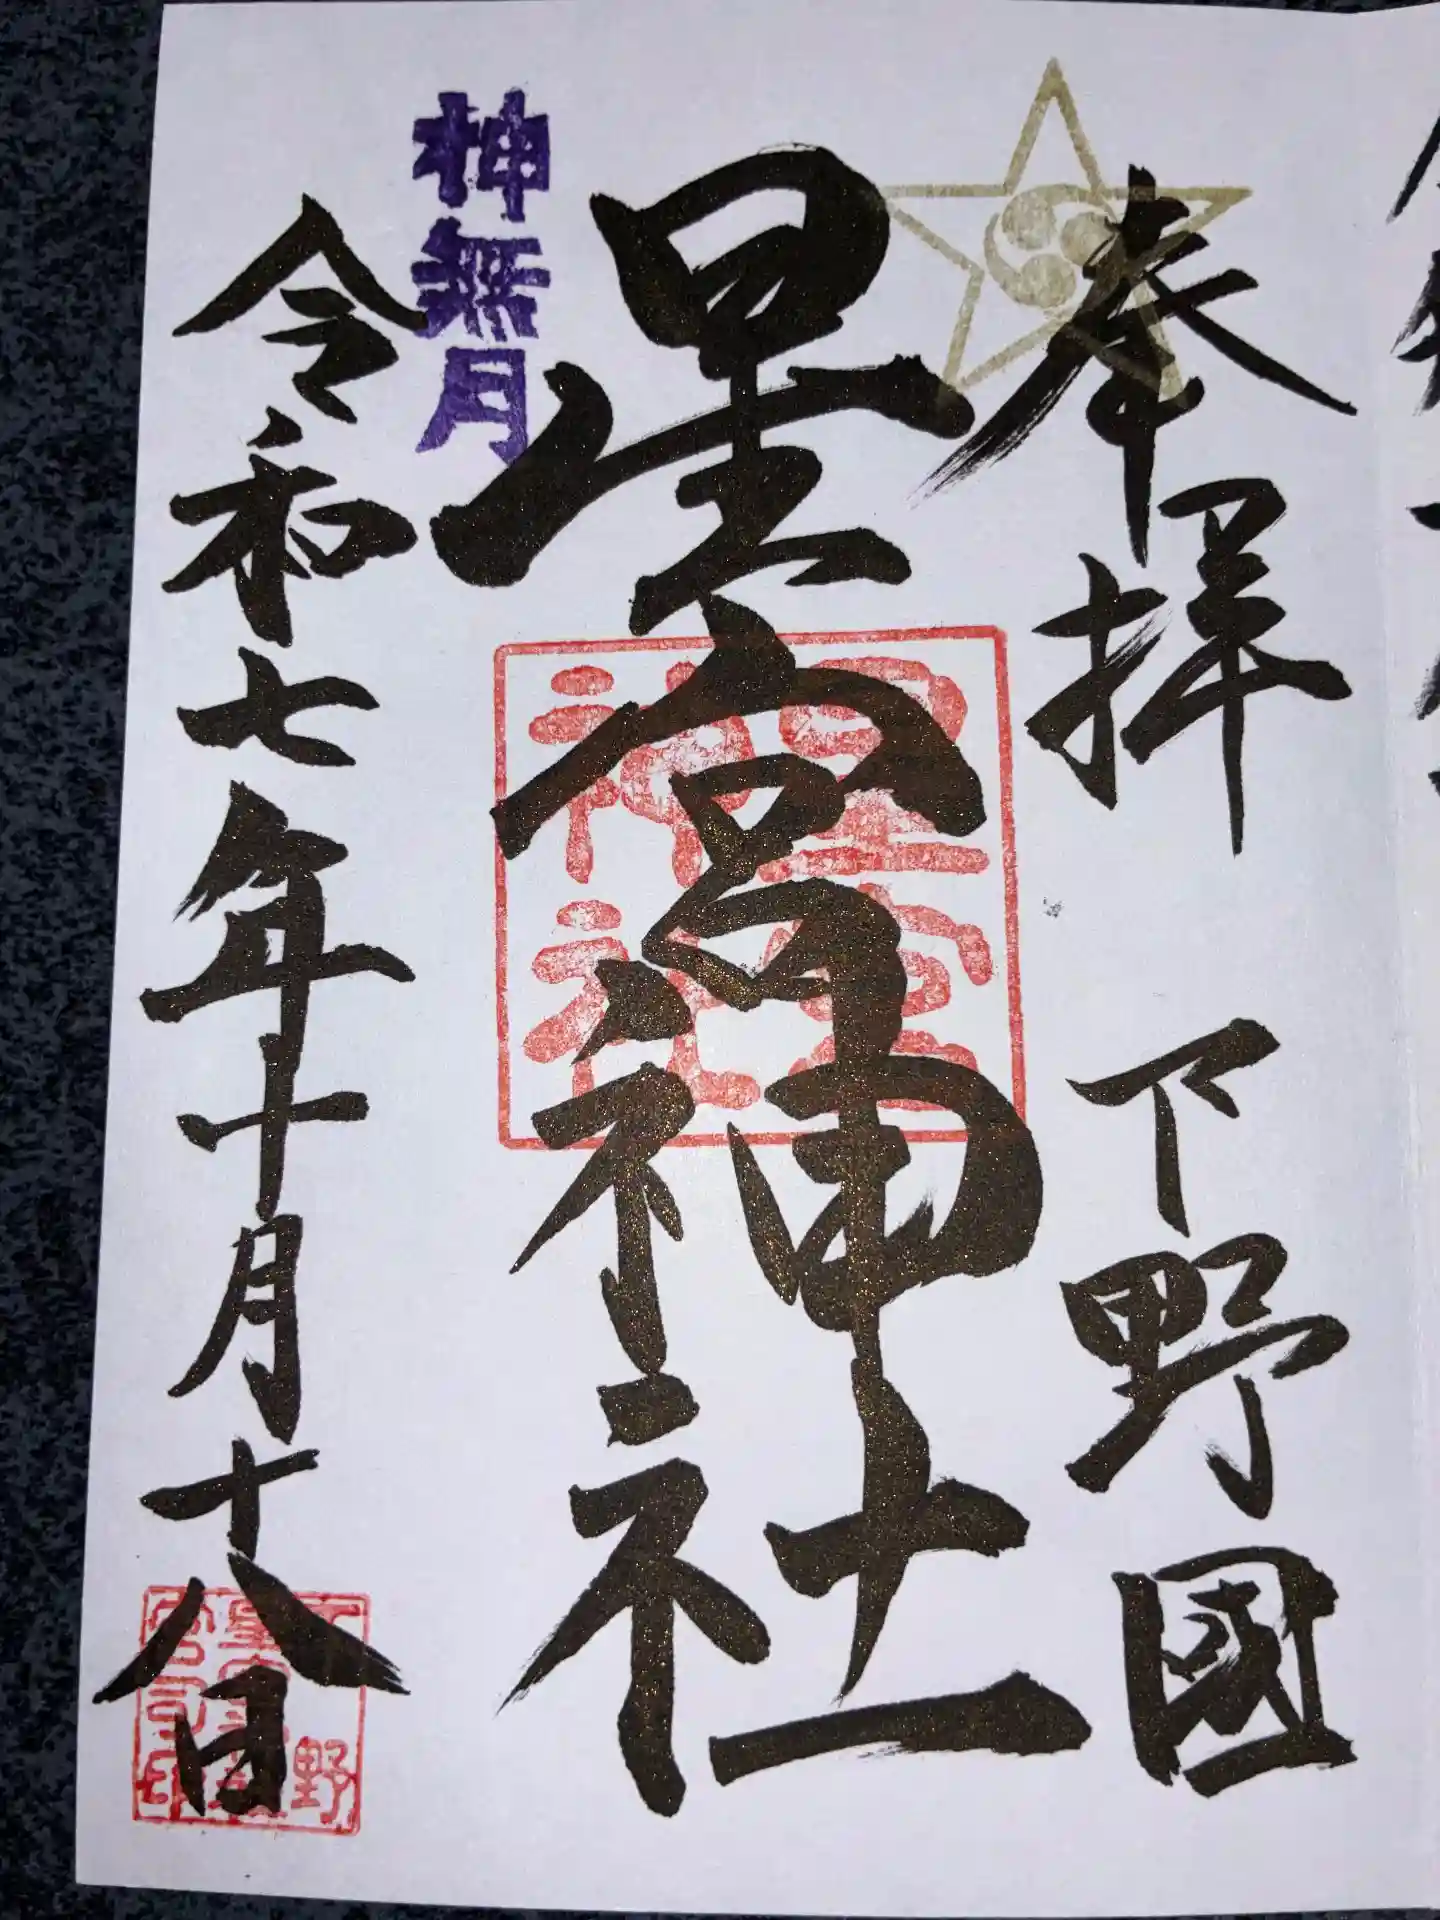 奉拝 下野國
星宮神社
星宮神社
神無月
令和七年十月十八日
下野